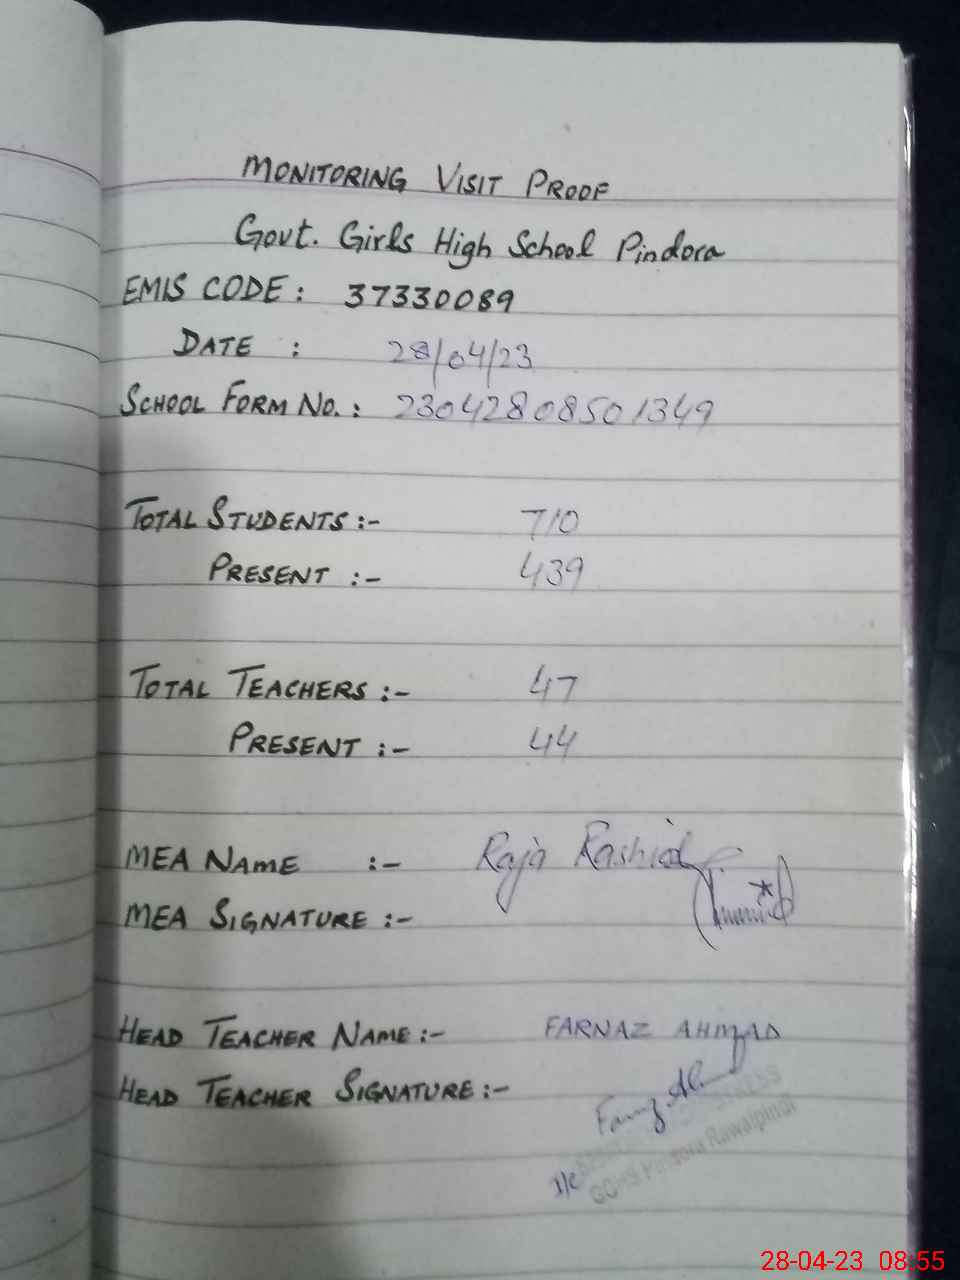 MONITORING VISIT PROOF
Govt. Girls High School Pindora
EMIS CODE : 37330089
DATE : 28/04/23
SCHOOL FORM NO. : 23042808501349
TOTAL STUDENTS :- 710
PRESENT :- 439
TOTAL TEACHERS :- 47
PRESENT :- 44
MEA NAME :- Raja Rashid
MEA SIGNATURE :-
HEAD TEACHER NAME :- FARNAZ AHMAD
HEAD TEACHER SIGNATURE :-
I/C
GGHS Pindora Rawalpindi
28-04-23 08:55